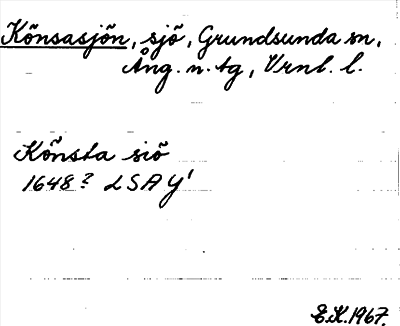 Könsasjön, sjö, Grundsunda sn,
Ång. n. tg, Vrnl. l.
Könsta siö
1648? LSA Y'
E.K.1967.